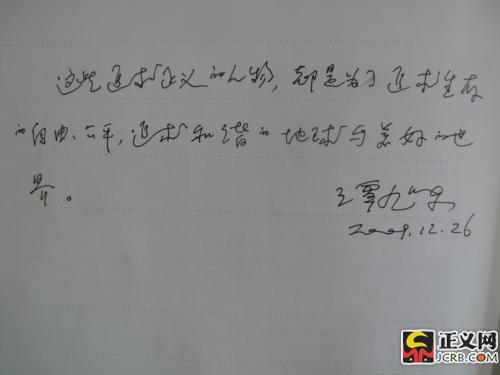 这些追求正义的人物，都是为了追求生存
的自由、公平，追求和谐的地球与美好的世
界。
王覃九宏
2009.12.26
正义网
JCRB.COM